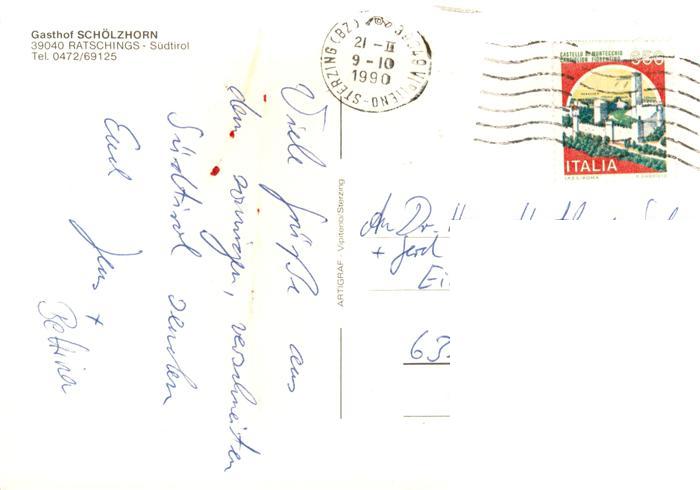 Gasthof SCHÖLZHORN
39040 RATSCHINGS - Südtirol
Tel. 0472/69125
39049 VIPITENO-STERZING (BZ)
21-II
9-10
1990
CASTELLO DI MONTECCHIO
CASTIGLION FIORENTINO
650
ITALIA
Viele Grüße aus
dem sonnigen, verschneiten
Südtirol senden
Euch
Jens +
Bettina
ARTIGRAF - Vipiteno/Sterzing
An Dr.
+ Gerd
63